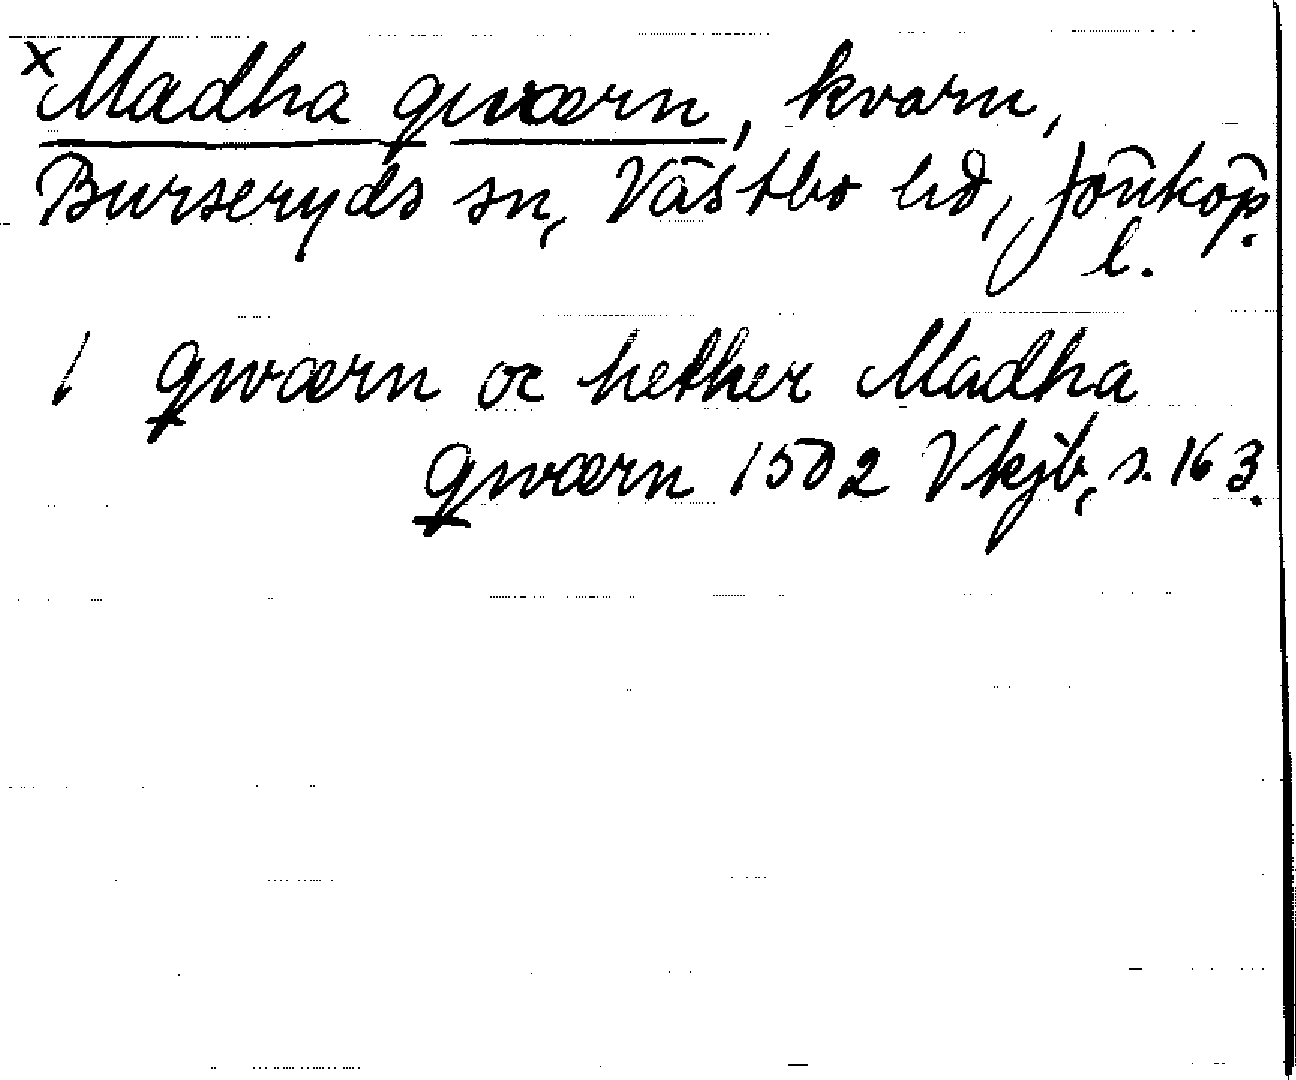 x Madha qwærn, kvarn,
Burseryds sn, Västbo hd, Jönköp.
l.
1 qwærn oc hether Madha
qwærn 1502 Vkjb, s. 163.